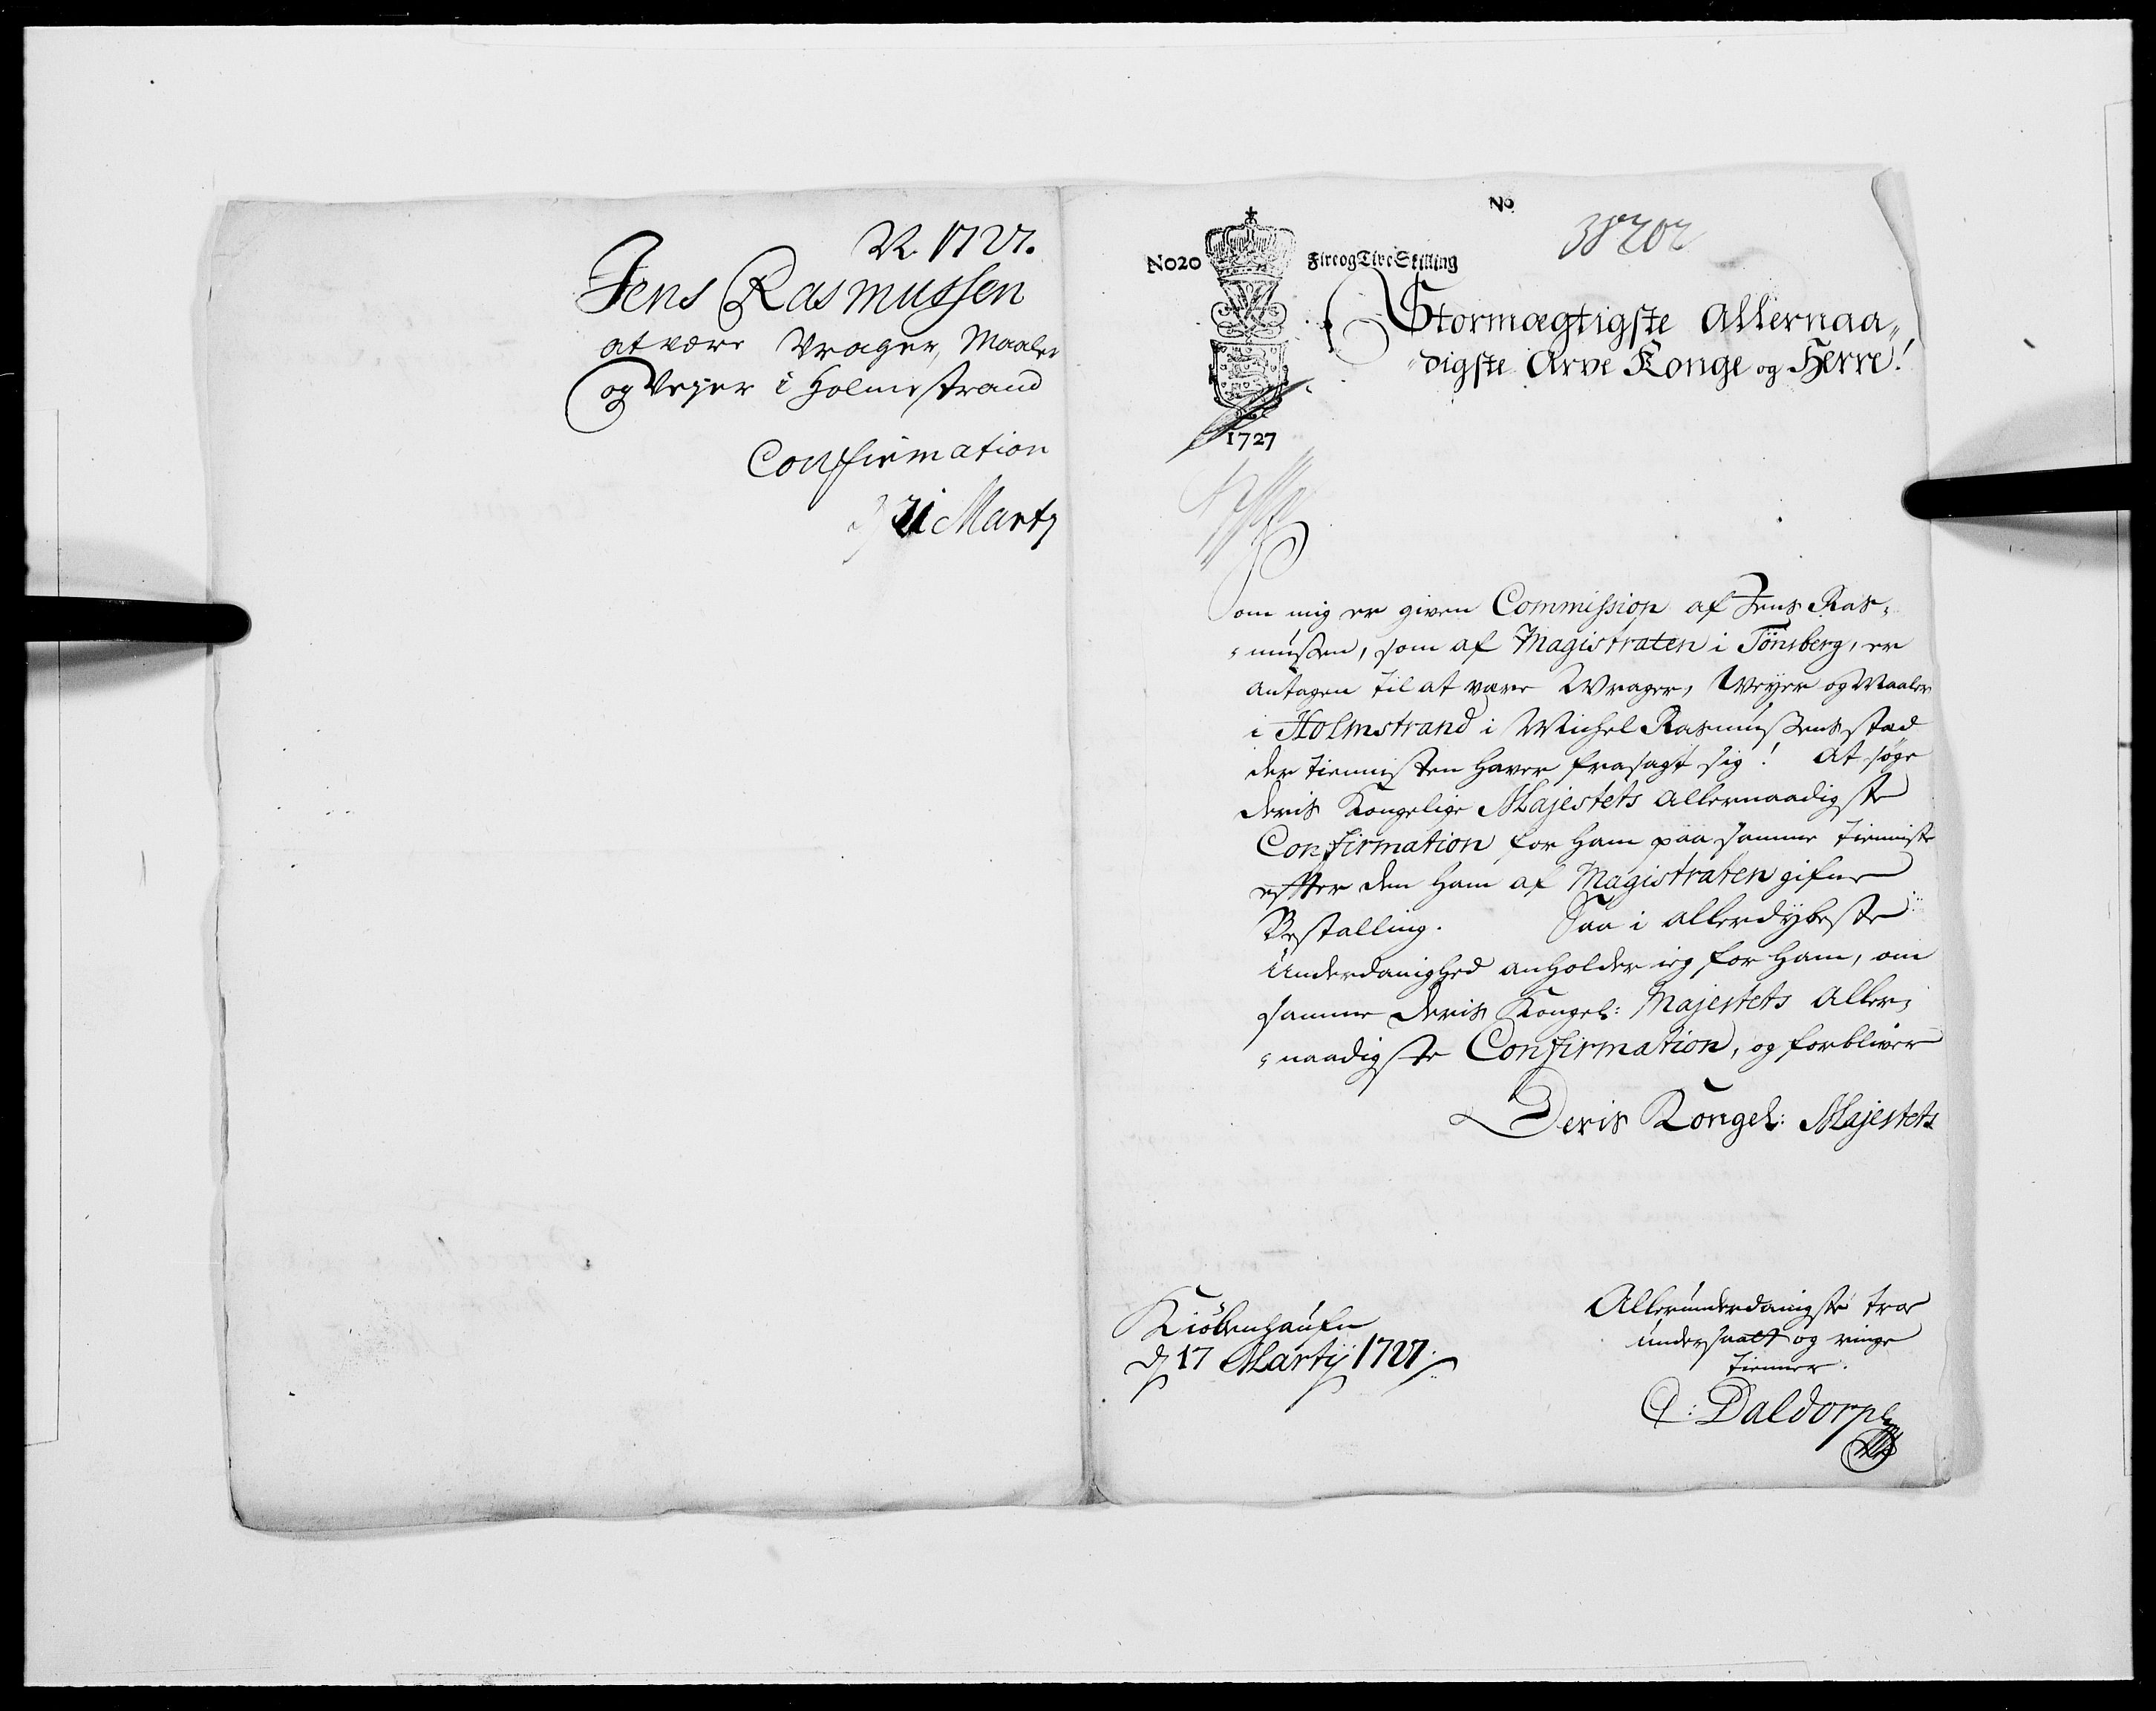 1727.
Jens Rasmussen
at være Vrager, Maaler
og Veyer i Holmestrand
Confirmation
21 Marty
No
No20
Fire og Tive Skilling
38202
1727
Stormægtigste Allernaa„
„digste Arve Konge og Herre!
Som mig er given Commission af Jens Ras„
„mussen, som af Magistraten i Tönsberg, er
antagen til at være Wrager, Weyer og Maaler
i Holmstrand i Michel Rasmussens stæd
der tiennisten haver frasagt sig! At søge
Deris Kongelige Majestets allernaadigste
Confirmation for ham paa samme tienniste
effter den ham af Magistraten gifne
Bestalling. Saa i allerdybeste
Underdanighed anholder ieg for ham, om
samme Deris Kongel: Majestets Aller„
„naadigste Confirmation, og forbliver
Deris Kongel: Majestets
Kiöbenhaufn
d 17 Martij 1727.
Allerunderdanigste troe
undersaatt og ringe
tienner.
C: Daldorph